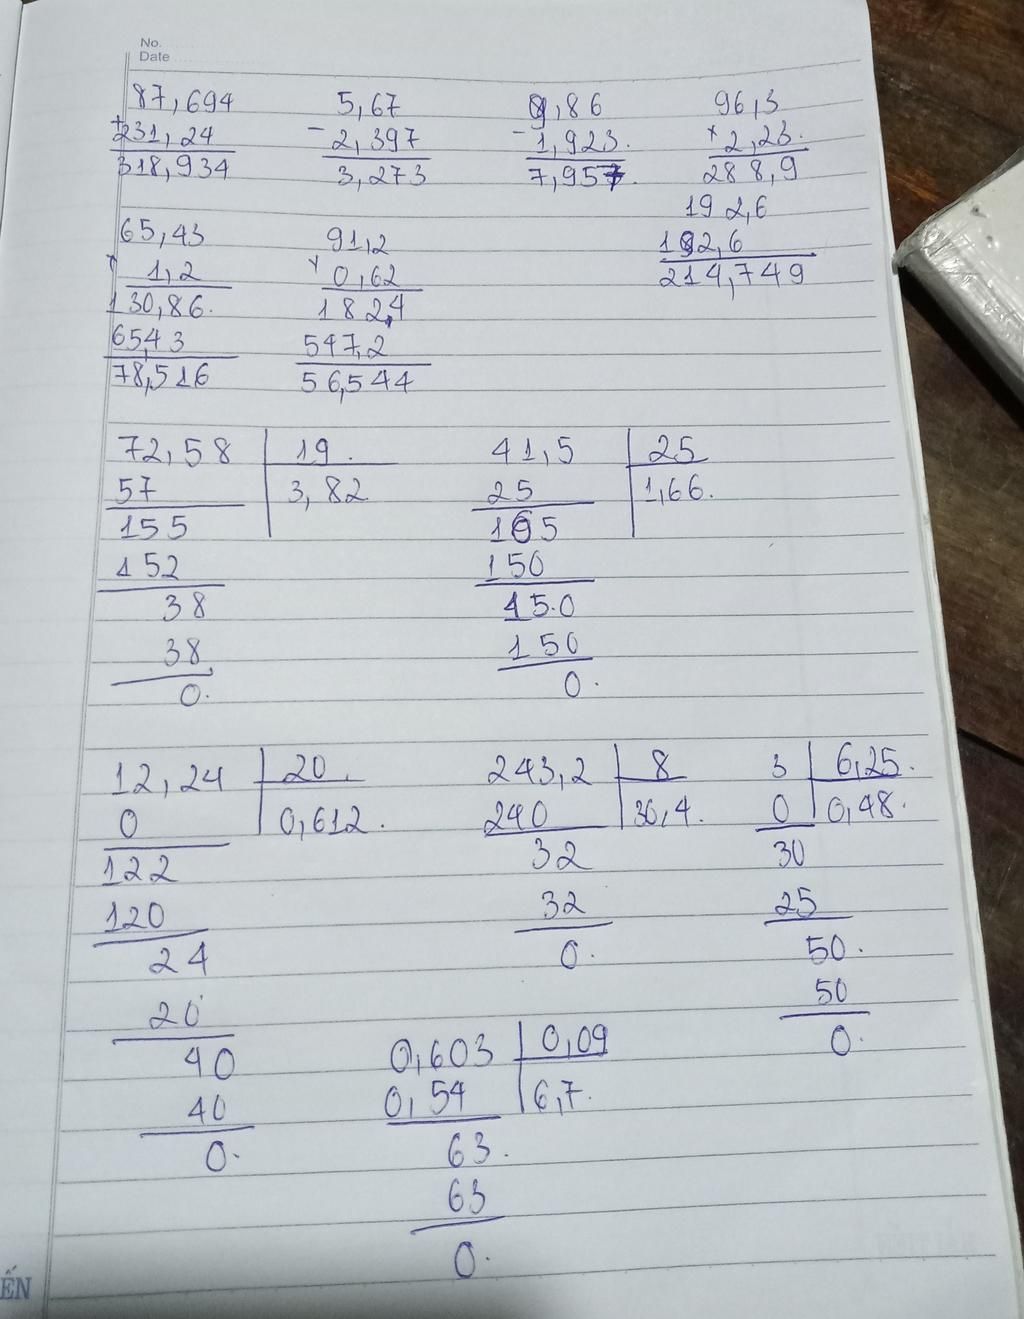 No.
Date
87,694 5,67 9,86 96,3
+ 231,24 - 2,397 - 1,923. x 2,23.
318,934 3,273 7,957. 288,9
192,6
65,43 91,2 192,6
x 1,2 x 0,62 214,749
130,86. 182,4
654,3 547,2
78,516 56,544
72,58 19. 41,5 25
57 3,82 25 1,66.
155 165
152 150
38 15.0
38 150
0. 0.
12,24 20. 243,2 8 3 6,25.
0 0,612. 240 30,4. 0 0,48.
122 32 30
120 32 25
24 0. 50.
20 50
40 0,603 0,09 0.
40 0,54 6,7.
0. 63.
63
0.
ẾN